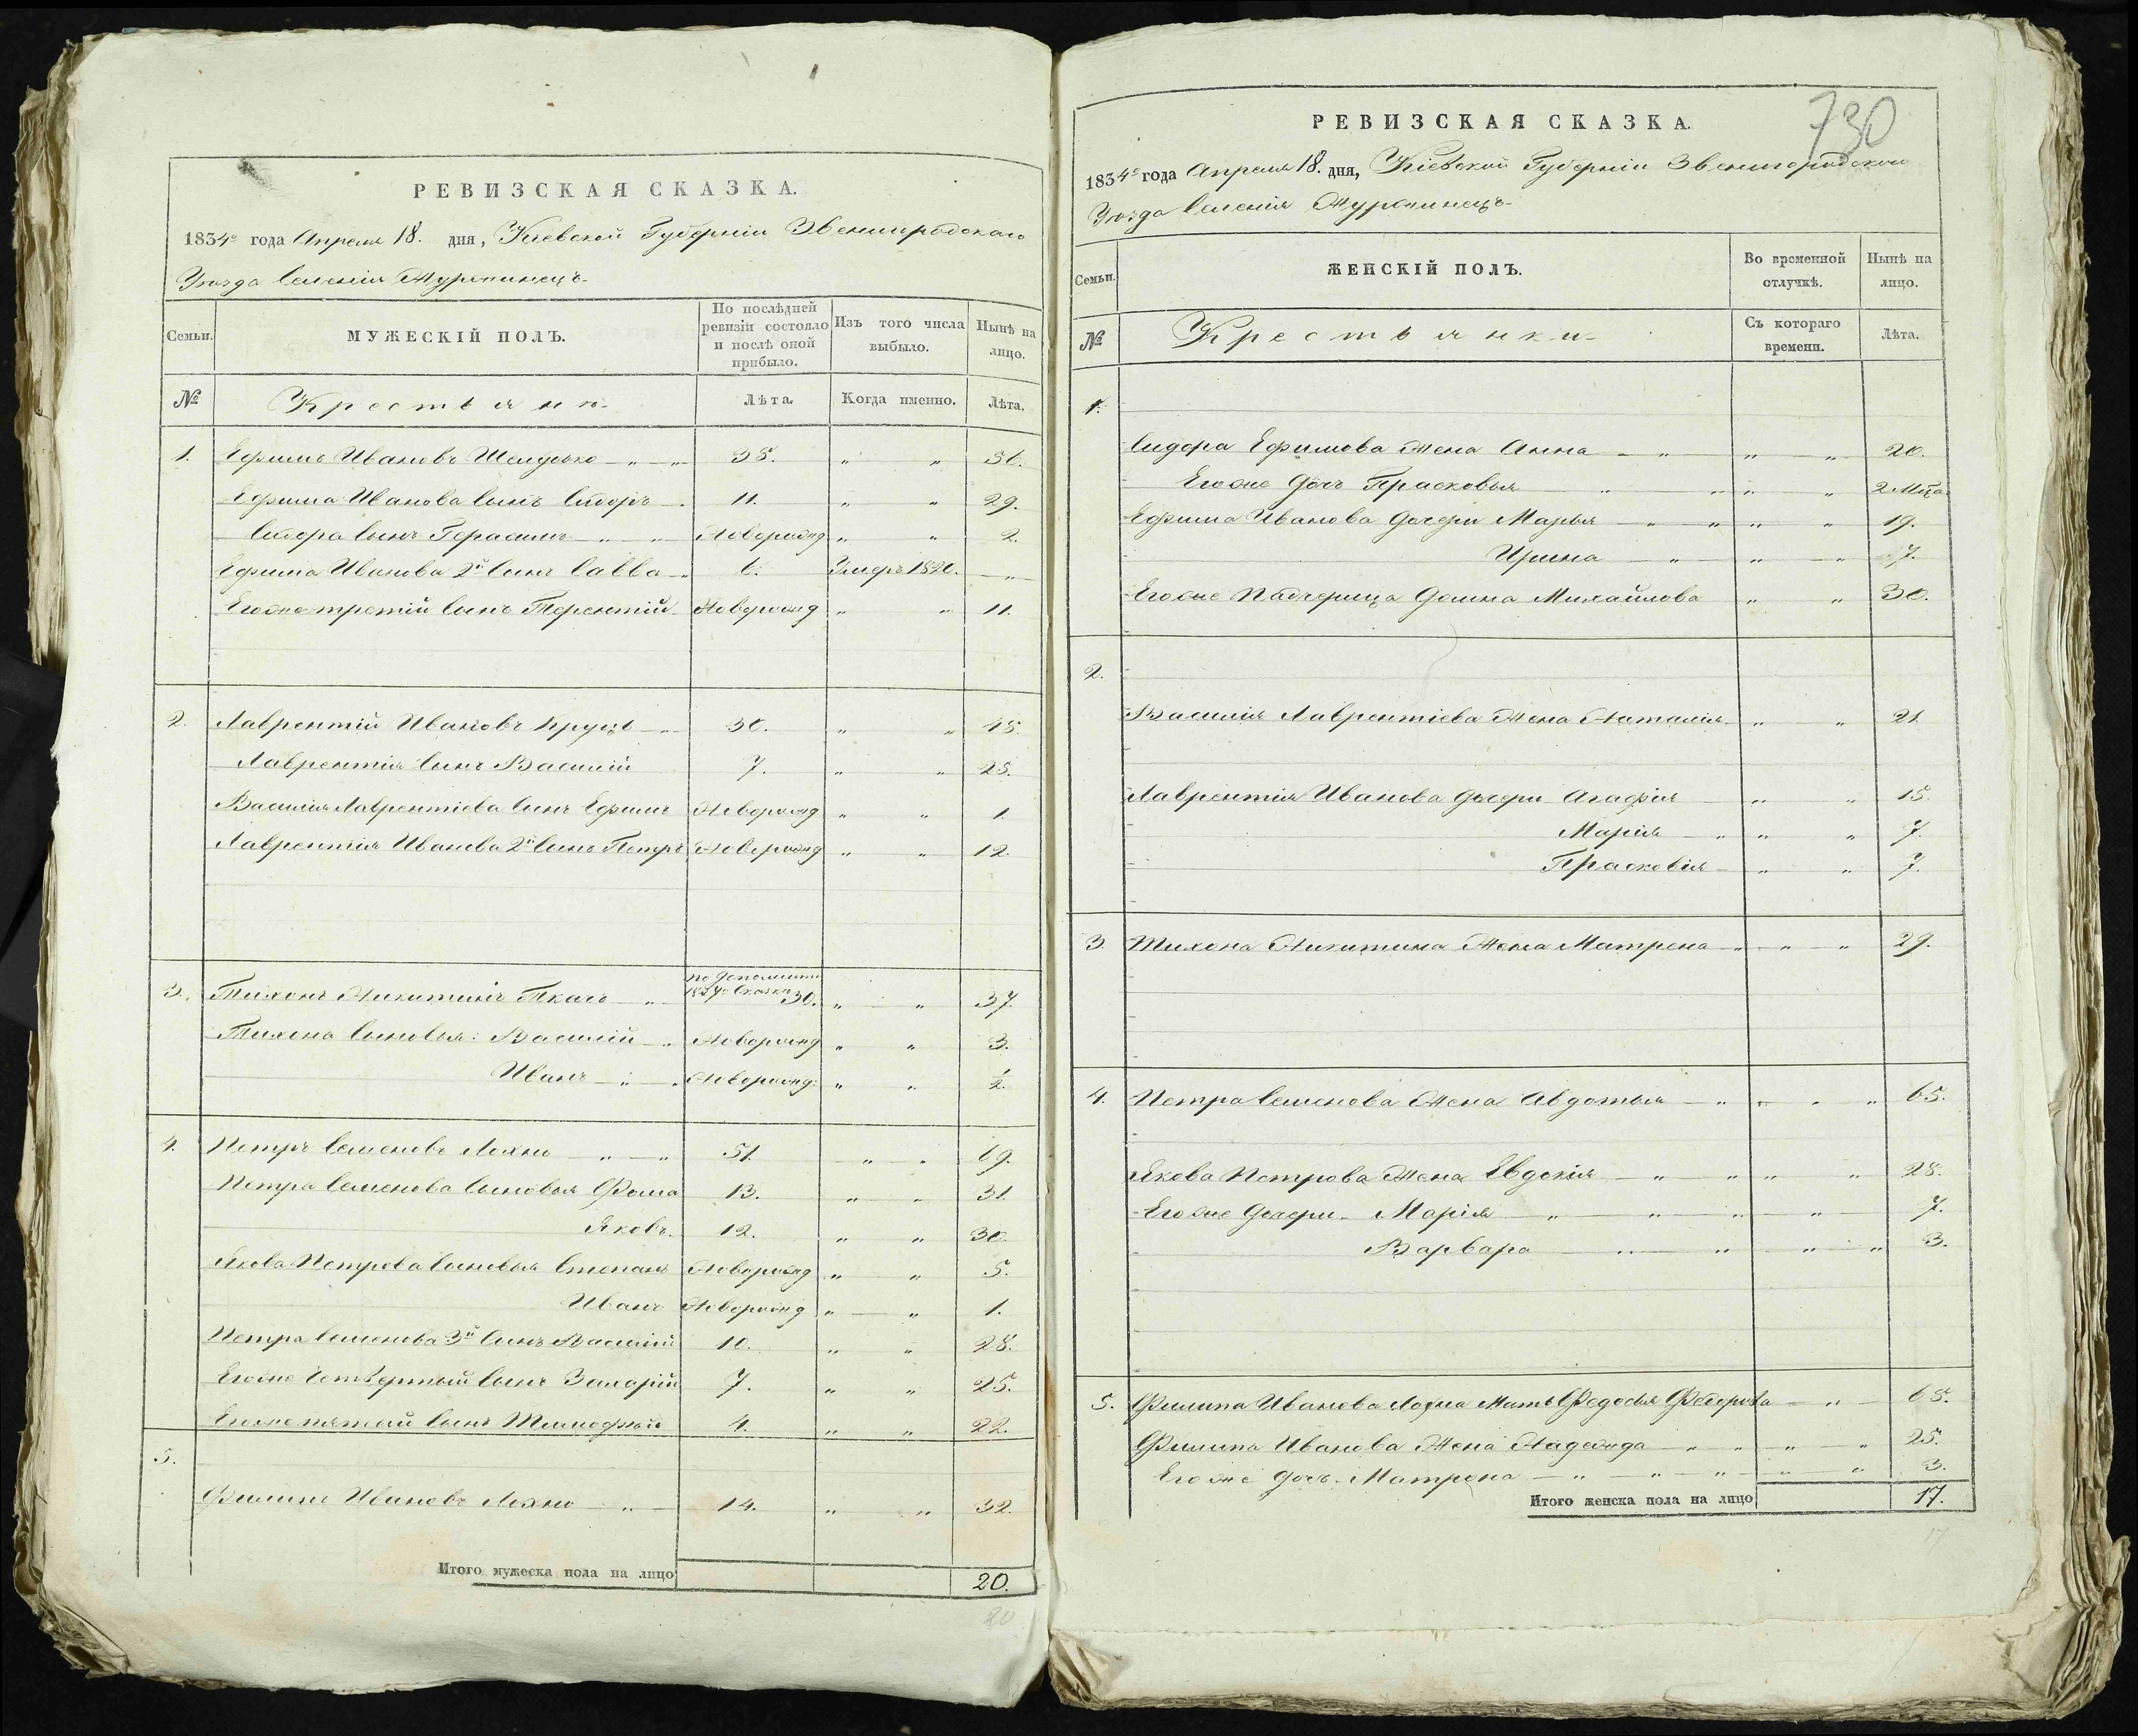 РЕВИЗСКАЯ СКАЗКА.
1834го года Апреля 18. дня, Киевской Губерніи Звенигородскаго
Уезда Селенія Журжинецъ
Семьи. МУЖЕСКІЙ ПОЛЪ. По послѣдней ревизіи состояло и послѣ оной прибыло. Изъ того числа выбыло. Нынѣ на лицо.
№ Крестьянъ Лѣта. Когда именно. Лѣта.
1. Ефимъ Ивановъ 38. " " 56.
Ефима Иванова Сынъ Сидоръ 11. " " 29.
Сидора Сынъ Герасимъ Новорожд " " 2.
Ефима Иванова 2й Сынъ Савва 6. Умеръ 1820. "
Егоже третій Сынъ Терентій Новорожд " " 11.
2. Лаврентій Ивановъ Круць 30. " " 48.
Лаврентія Сынъ Василій 7. " " 25.
Василія Лаврентіева Сынъ Ефимъ Новорожд " " 1.
Лаврентія Иванова 2й Сынъ Петръ Новорожд " " 12.
3. Тихонъ Никитинъ Ткачъ 30. " " 37.
Тихона Сыновья: Василій Новорожд " " 3.
Иванъ Новорожд: " " ½.
4. Петръ Семеновъ Лохно 51. " " 69.
Петра Семенова Сыновья Фома 13. " " 31.
Яковъ. 12. " " 30.
Якова Петрова Сыновья Степанъ Новорожд " " 5.
Иванъ Новорожд " " 1.
Петра Семенова 3й Сынъ Василій 10. " " 28.
Егоже Четвертый Сынъ Захарій 7. " " 25.
Егоже пятый Сынъ Тимофей 4. " " 22.
5.
Филипъ Ивановъ Лохно 14. " " 32.
Итого мужеска пола на лицо 20.
20
730
РЕВИЗСКАЯ СКАЗКА.
1834го года Апреля 18. дня, Кіевской Губерніи Звенигородскаго
Уезда Селенія Журжинецъ
Семьи. ЖЕНСКІЙ ПОЛЪ. Во временной отлучкѣ. Нынѣ на лицо.
№ Крестьянки Съ котораго времени. Лѣта.
1.
Сидора Ефимова Жена Анна " " 20.
Егоже Дочь Прасковья " " 2 Мца.
Ефима Иванова Дочери Марья " " 19.
Ирина " " 7.
Егоже Падчерица Домна Михайлова " " 30.
2.
Василія Лаврентіева Жена Наталія " " 21.
Лаврентія Иванова Дочери Агафія " " 15.
Марія " " 7.
Прасковія " " 7.
3. Тихона Никитина Жена Матрена " " 29.
4. Петра Семенова Жена Авдотья " " 65.
Якова Петрова Жена Евдокія " " 28.
Егоже Дочери Марія " " 7.
Варвара " " 3.
5. Филипа Иванова Лохна Мать Федосья Федорова " 65.
Филипа Иванова Жена Надежда " " 25.
Егоже Дочь. Матрена " " 3.
Итого женска пола на лицо 17.
17